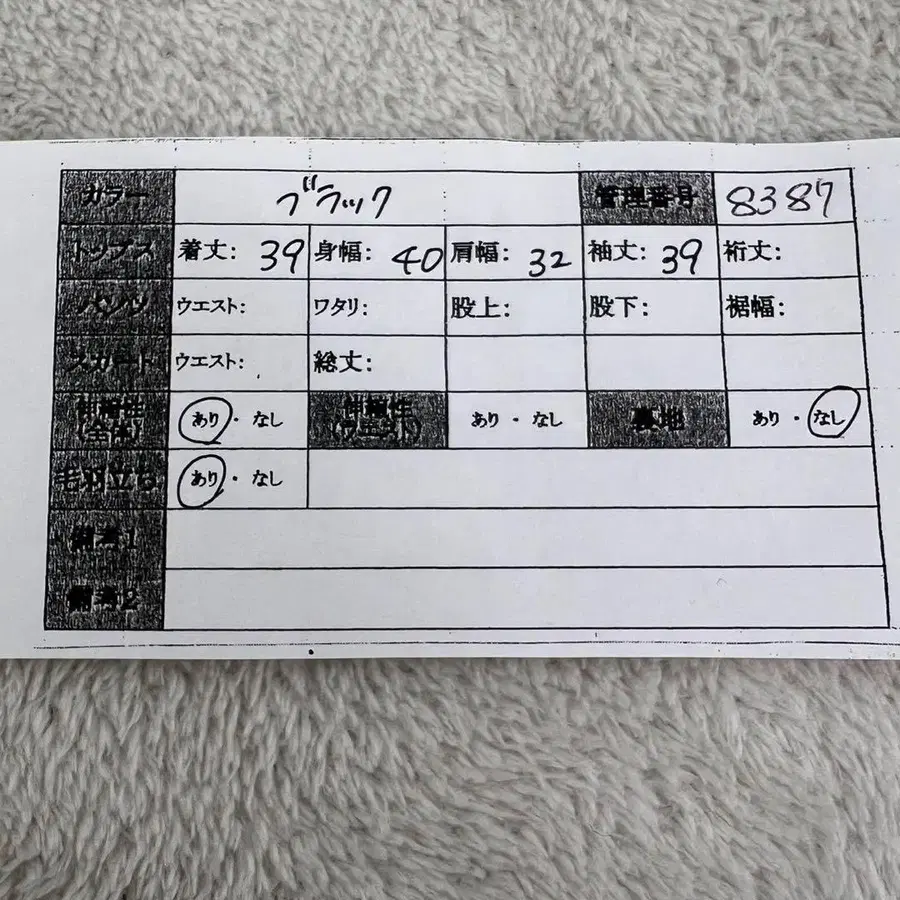 カラー ブラック 管理番号 8387
トップス 着丈: 39 身幅: 40 肩幅: 32 袖丈: 39 裄丈:
パンツ ウエスト: ワタリ: 股上: 股下: 裾幅:
スカート ウエスト: 総丈:
伸縮性(全体) あり・なし 伸縮性(ウエスト) あり・なし 裏地 あり・なし
毛羽立ち あり・なし
備考1
備考2